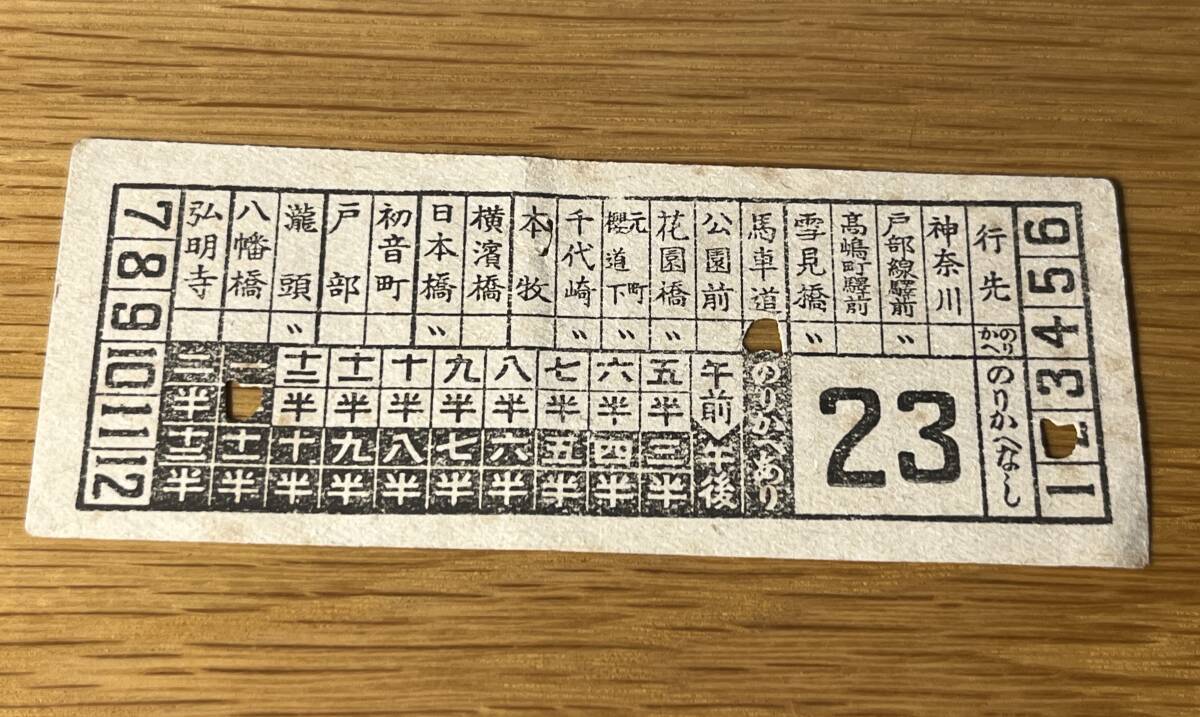 6
5
4
3
2
1
行先
のりかへ
神奈川
戸部線驛前
〃
高嶋町驛前
雪見橋
〃
馬車道
公園前
花園橋
〃
元町
櫻道下
〃
千代崎
〃
本牧
横濱橋
日本橋
〃
初音町
戸部
瀧頭
〃
八幡橋
弘明寺
のりかへなし
23
のりかへあり
午前
午後
五 半 三 半
六 半 四 半
七 半 五 半
八 半 六 半
九 半 七 半
十 半 八 半
十一 半 九 半
十二 半 十 半
一 十一 半
二 半 十二 半
7
8
9
10
11
12